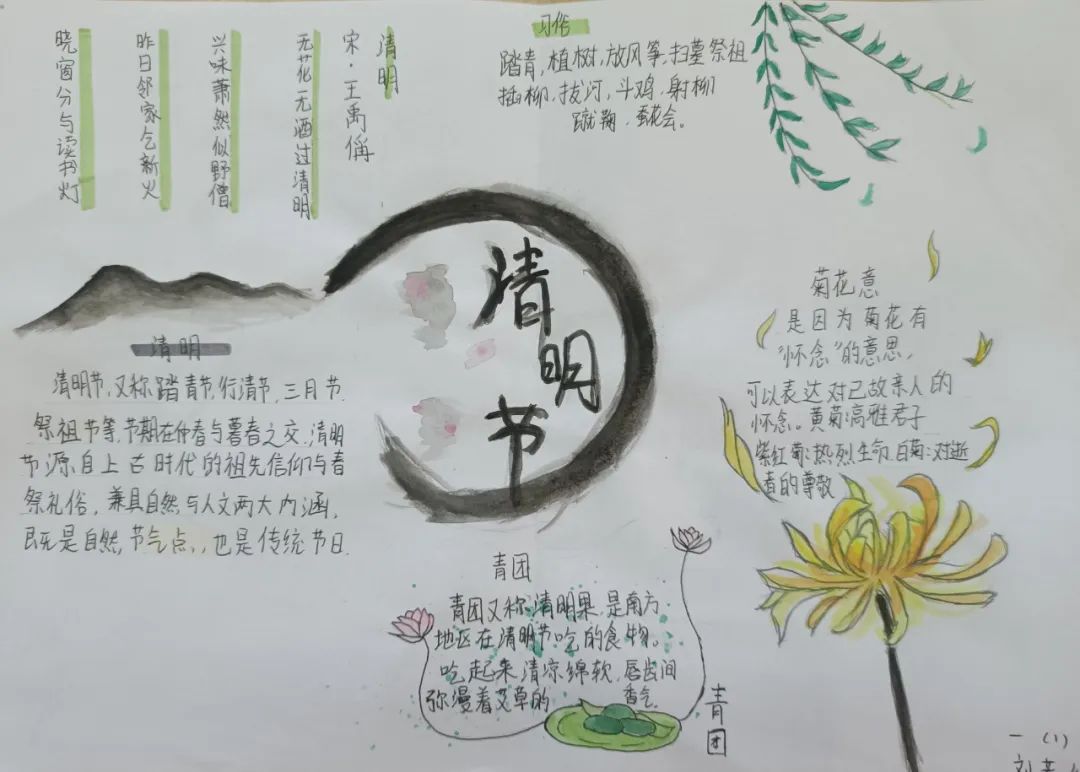 清明
宋·王禹偁
无花无酒过清明
兴味萧然似野僧
昨日邻家乞新火
晓窗分与读书灯
习俗
踏青，植树，放风筝，扫墓祭祖
插柳，拔河，斗鸡，射柳
蹴鞠，蚕花会。
清明节
清明
清明节，又称踏青节，行清节，三月节
祭祖节等，节期在仲春与暮春之交，清明
节源自上古时代的祖先信仰与春
祭礼俗，兼具自然与人文两大内涵，
既是自然节气点，，也是传统节日
菊花意
是因为菊花有
“怀念”的意思，
可以表达对已故亲人的
怀念。黄菊：高雅君子
紫红菊：热烈生命，白菊：对逝
者的尊敬
青团
青团又称清明果，是南方
地区在清明节吃的食物。
吃起来清凉绵软，唇齿间
弥漫着艾草的香气
青团
一（1）
刘